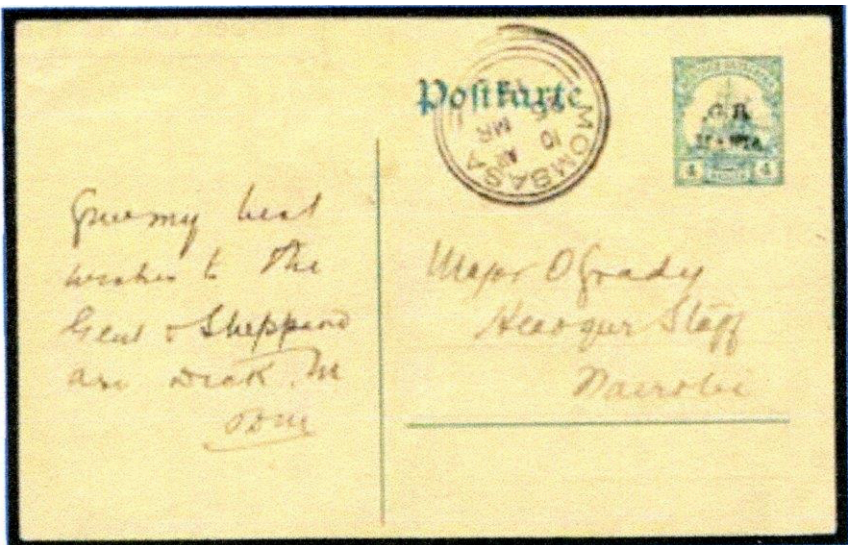 Postkarte
MOMBASA
10
MR
G.R.
MAFIA
4 4
Give my best
wishes to the
Genl & Sheppard
Major O Grady
Headqur Staff
Nairobi